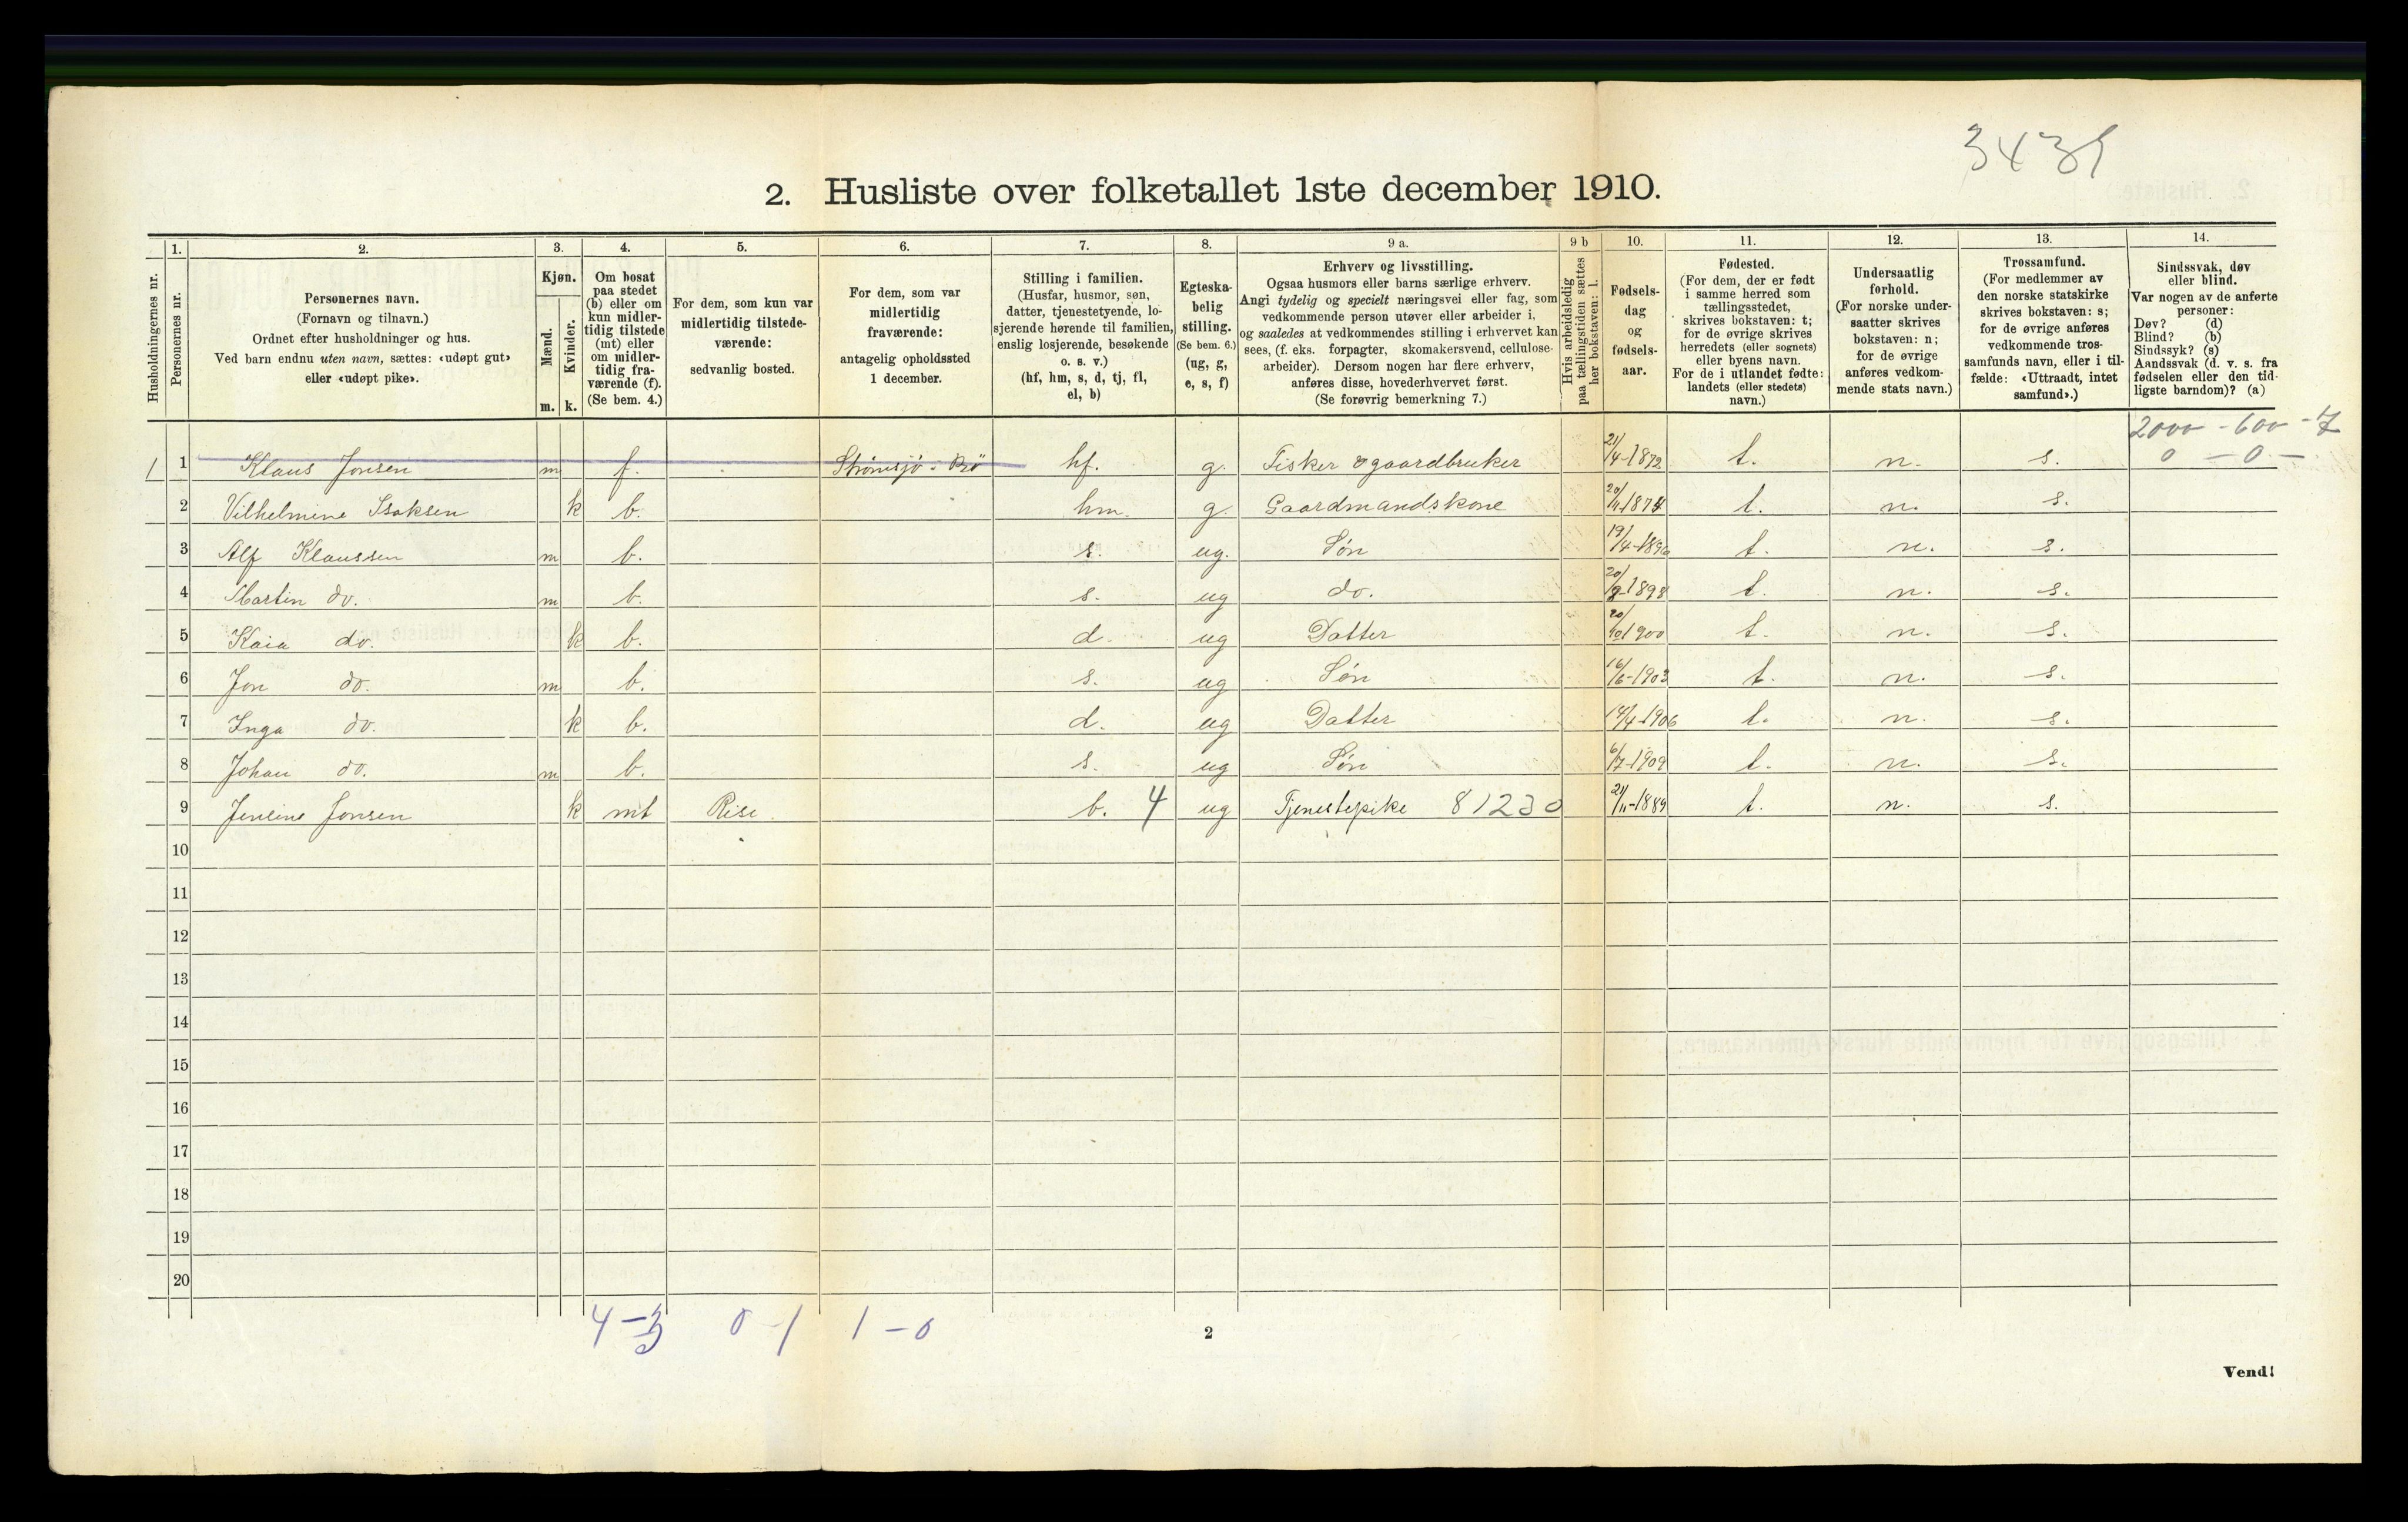 3439
2. Husliste over folketallet 1ste december 1910.
Husholdningernes nr.
1.
Personernes nr.
2.
Personernes navn.
(Fornavn og tilnavn.)
Ordnet efter husholdninger og hus.
Ved barn endnu uten navn, sættes: «udøpt gut»
eller «udøpt pike».
3.
Kjøn.
Mænd.
Kvinder.
m. k.
4.
Om bosat
paa stedet
(b) eller om
kun midler-
tidig tilstede
(mt) eller
om midler-
tidig fra-
værende (f).
(Se bem. 4.)
5.
For dem, som kun var
midlertidig tilstede-
værende:
sedvanlig bosted.
6.
For dem, som var
midlertidig
fraværende:
antagelig opholdssted
1 december.
7.
Stilling i familien.
(Husfar, husmor, søn,
datter, tjenestetyende, lo-
sjerende hørende til familien,
enslig losjerende, besøkende
o. s. v.)
(hf, hm, s, d, tj, fl,
el, b)
8.
Egteska-
belig
stilling.
(Se bem. 6.)
(ug, g,
e, s, f)
9 a.
Erhverv og livsstilling.
Ogsaa husmors eller barns særlige erhverv.
Angi tydelig og specielt næringsvei eller fag, som
vedkommende person utøver eller arbeider i,
og saaledes at vedkommendes stilling i erhvervet kan
sees, (f. eks. forpagter, skomakersvend, cellulose-
arbeider). Dersom nogen har flere erhverv,
anføres disse, hovederhvervet først.
(Se forøvrig bemerkning 7.)
9 b
Hvis arbeidsledig
paa tællingstiden sættes
her bokstaven: l.
10.
Fødsels-
dag
og
fødsels-
aar.
11.
Fødested.
(For dem, der er født
i samme herred som
tællingsstedet,
skrives bokstaven: t;
for de øvrige skrives
herredets (eller sognets)
eller byens navn.
For de i utlandet fødte:
landets (eller stedets)
navn.)
12.
Undersaatlig
forhold.
(For norske under-
saatter skrives
bokstaven: n;
for de øvrige
anføres vedkom-
mende stats navn.)
13.
Trossamfund.
(For medlemmer av
den norske statskirke
skrives bokstaven: s;
for de øvrige anføres
vedkommende tros-
samfunds navn, eller i til-
fælde: «Uttraadt, intet
samfund».)
14.
Sindssvak, døv
eller blind.
Var nogen av de anførte
personer:
Døv? (d)
Blind? (b)
Sindssyk? (s)
Aandssvak (d. v. s. fra
fødselen eller den tid-
ligste barndom)? (a)
2000 - 600 - 7
1 1 Klaus Jonsen m f. Strømsjø i Bø hf. g. Fisker og gaardbruker 21/4-1872 t. n. s. 0 - 0 -
2 Vilhelmine Isaksen k b. hm. g. Gaardmandskone 20/11 1874 t. n. s.
3 Alf Klaussen m b. s. ug. Søn 19/4-1896 t. n. s.
4 Martin do. m b. s. ug do. 20/9-1898 t. n. s.
5 Kaia do. k b. d. ug Datter 20/10 1900 t. n. s.
6 Jon do. m b. s. ug Søn 16/6-1903 t. n. s.
7 Inga do. k b. d. ug Datter 14/4-1906 t. n. s.
8 Johan do. m b. s. ug Søn 6/7-1909 t. n. s.
9 Jensine Jonsen k mt Rise b. 4 ug Tjenestepike 81230 21/11-1889 t. n. s.
10
11
12
13
14
15
16
17
18
19
20
4-3 0-1 1-0
2
Vend!